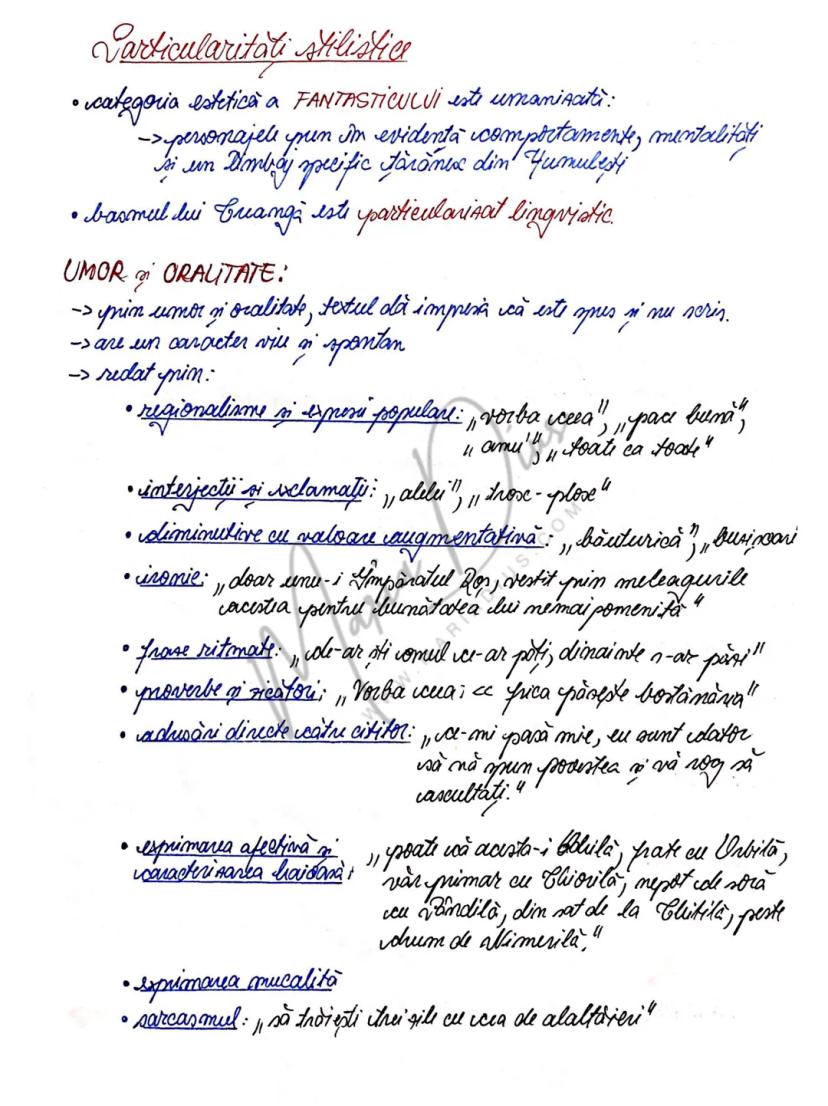 Particularități stilistice
• categoria estetică a FANTASTICULUI este umanizată:
-> personajele pun în evidență comportamente, mentalități
și un limbaj specific țărănesc din Humulești
• basmul lui Creangă este particularizat lingvistic.
UMOR și ORALITATE:
-> prin umor și oralitate, textul dă impresia că este spus și nu scris.
-> are un caracter viu și spontan
-> redat prin:
• regionalisme și expresii populare: „vorba ceea", „pace bună",
„amu", „toate ca toate"
• interjecții și exclamații: „alelei", „trosc-plosc"
• diminutive cu valoare augmentativă: „băuturică", „buzișoare
• ironie: „doar unu-i Împăratul Roș, vestit prin meleagurile
acestea pentru bunătatea lui nemaipomenită"
• fraze ritmate: „de-ar ști omul ce-ar păți, dinainte s-ar păzi"
• proverbe și zicători: „Vorba ceea: << frica păzește bostănăria"
• adresări directe către cititor: „ce-mi pasă mie, eu sunt dator
să vă spun povestea și vă rog să
ascultați."
• exprimarea afectivă și caracterizarea haioasă: „poate că acesta-i Ochilă, frate cu Orbilă,
văr primar cu Chiorilă, nepot de soră
cu Pândilă, din sat de la Chitilă, peste
drum de Nimerilă."
• exprimarea mucalită
• sarcasmul: „să trăiești trei zile cu cea de alaltăieri"
Maria Dius
WWW.MARIADIUS.COM